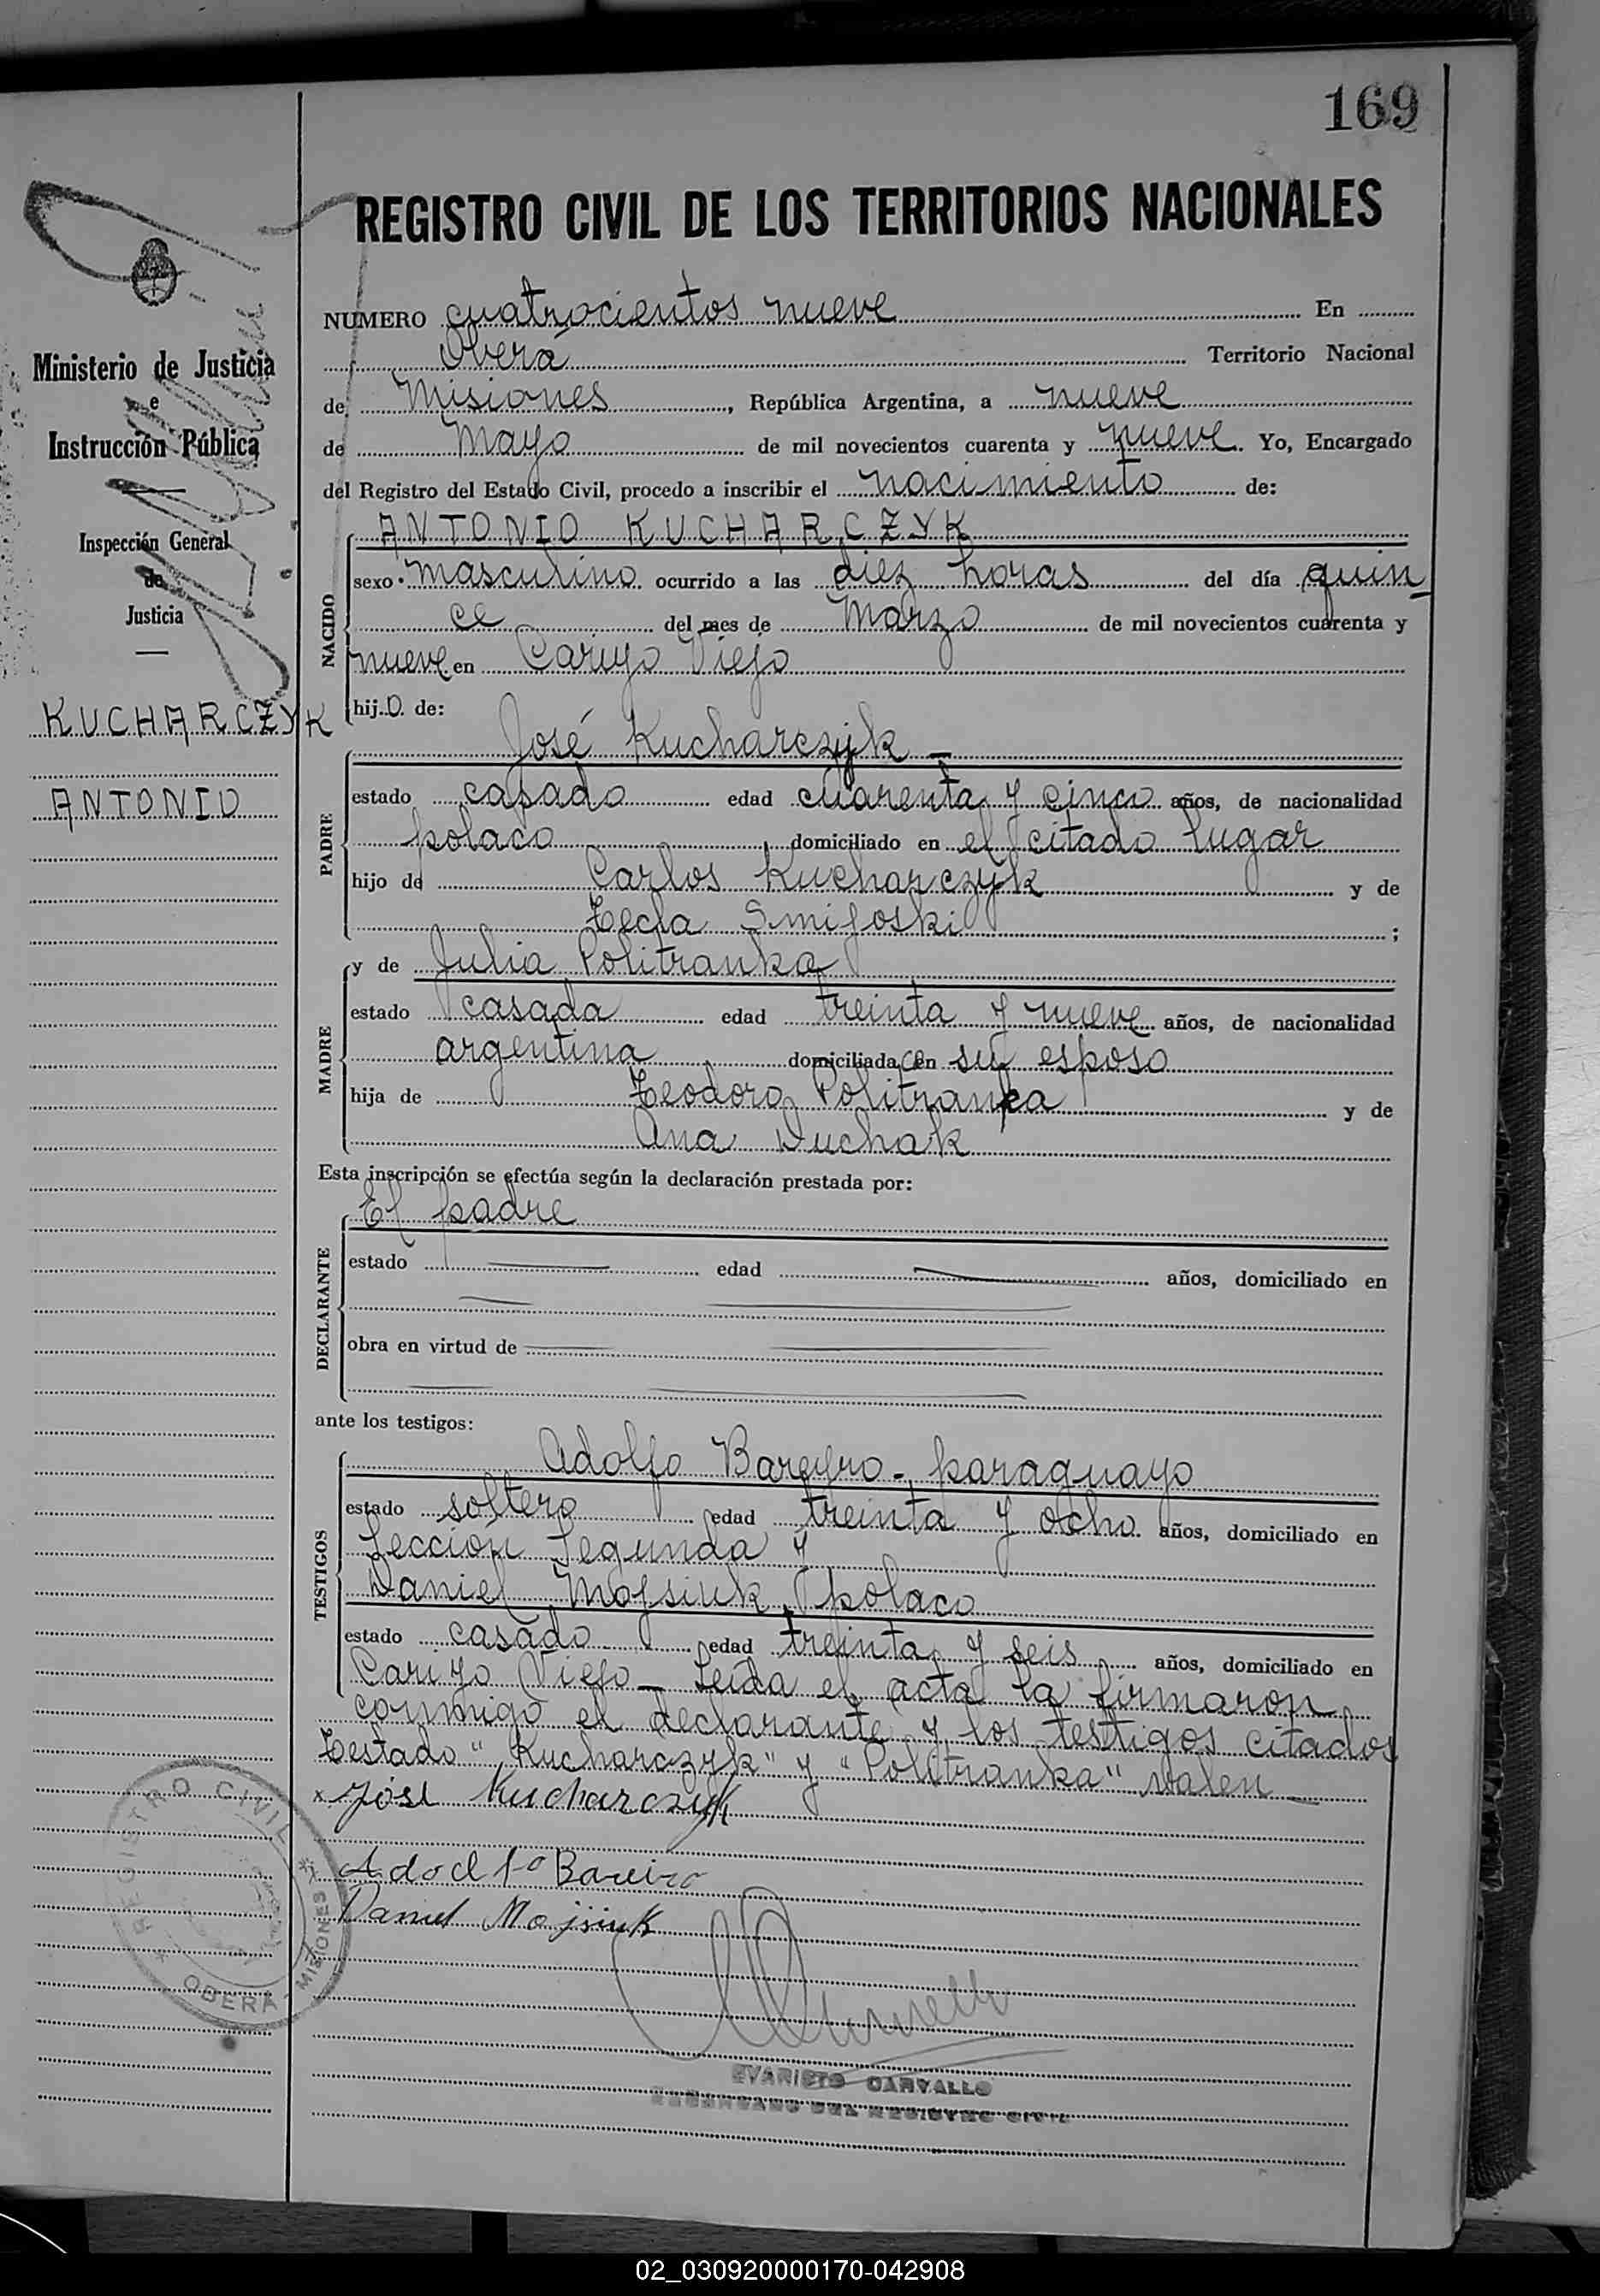 169
REGISTRO CIVIL DE LOS TERRITORIOS NACIONALES
Ministerio de Justicia
e
Instrucción Pública
Inspección General
de
Justicia
KUCHARCZYK
ANTONIO
NUMERO cuatrocientos nueve En
Oberá Territorio Nacional
de Misiones, República Argentina, a nueve
de Mayo de mil novecientos cuarenta y nueve. Yo, Encargado
del Registro del Estado Civil, procedo a inscribir el nacimiento de:
NACIDO
ANTONIO KUCHARCZYK
sexo masculino ocurrido a las diez horas del día quin
ce del mes de Marzo de mil novecientos cuarenta y
nueve en Viejo
hijo de:
PADRE
José Kucharczyk
estado casado edad cuarenta y cinco años, de nacionalidad
polaco domiciliado en el citado lugar
hijo de Carlos Kucharczyk y de
Tecla Smifoski;
MADRE
y de Julia Politranka
estado casada edad treinta y nueve años, de nacionalidad
argentina domiciliada en su esposo
hija de Teodoro Politranka y de
Ana Duchak
Esta inscripción se efectúa según la declaración prestada por:
DECLARANTE
El padre
estado edad años, domiciliado en
obra en virtud de
ante los testigos:
TESTIGOS
Adolfo Bareyro - paraguayo
estado soltero edad treinta y ocho años, domiciliado en
Sección Segunda y
Daniel Mojsiuk, polaco
estado casado edad treinta y seis años, domiciliado en
Viejo - Leída el acta la firmaron
conmigo el declarante y los testigos citados
Testado "Kucharczyk" y "Politranka" valen
x José Kucharczyk
Bareiro
Daniel Mojsiuk
REGISTRO CIVIL
OBERA - MISIONES
EVARISTO CARVALLO
ENCARGADO DEL REGISTRO CIVIL
02_030920000170-042908